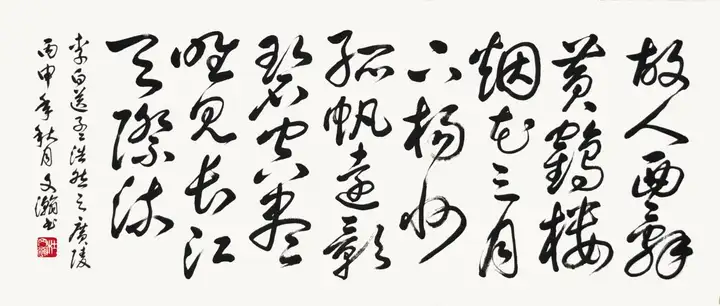 故人西辭
黄鶴樓
烟花三月
下楊州
孤帆遠影
碧空盡
唯見長江
天際流
李白送孟浩然之廣陵
丙申年秋月文瀚書